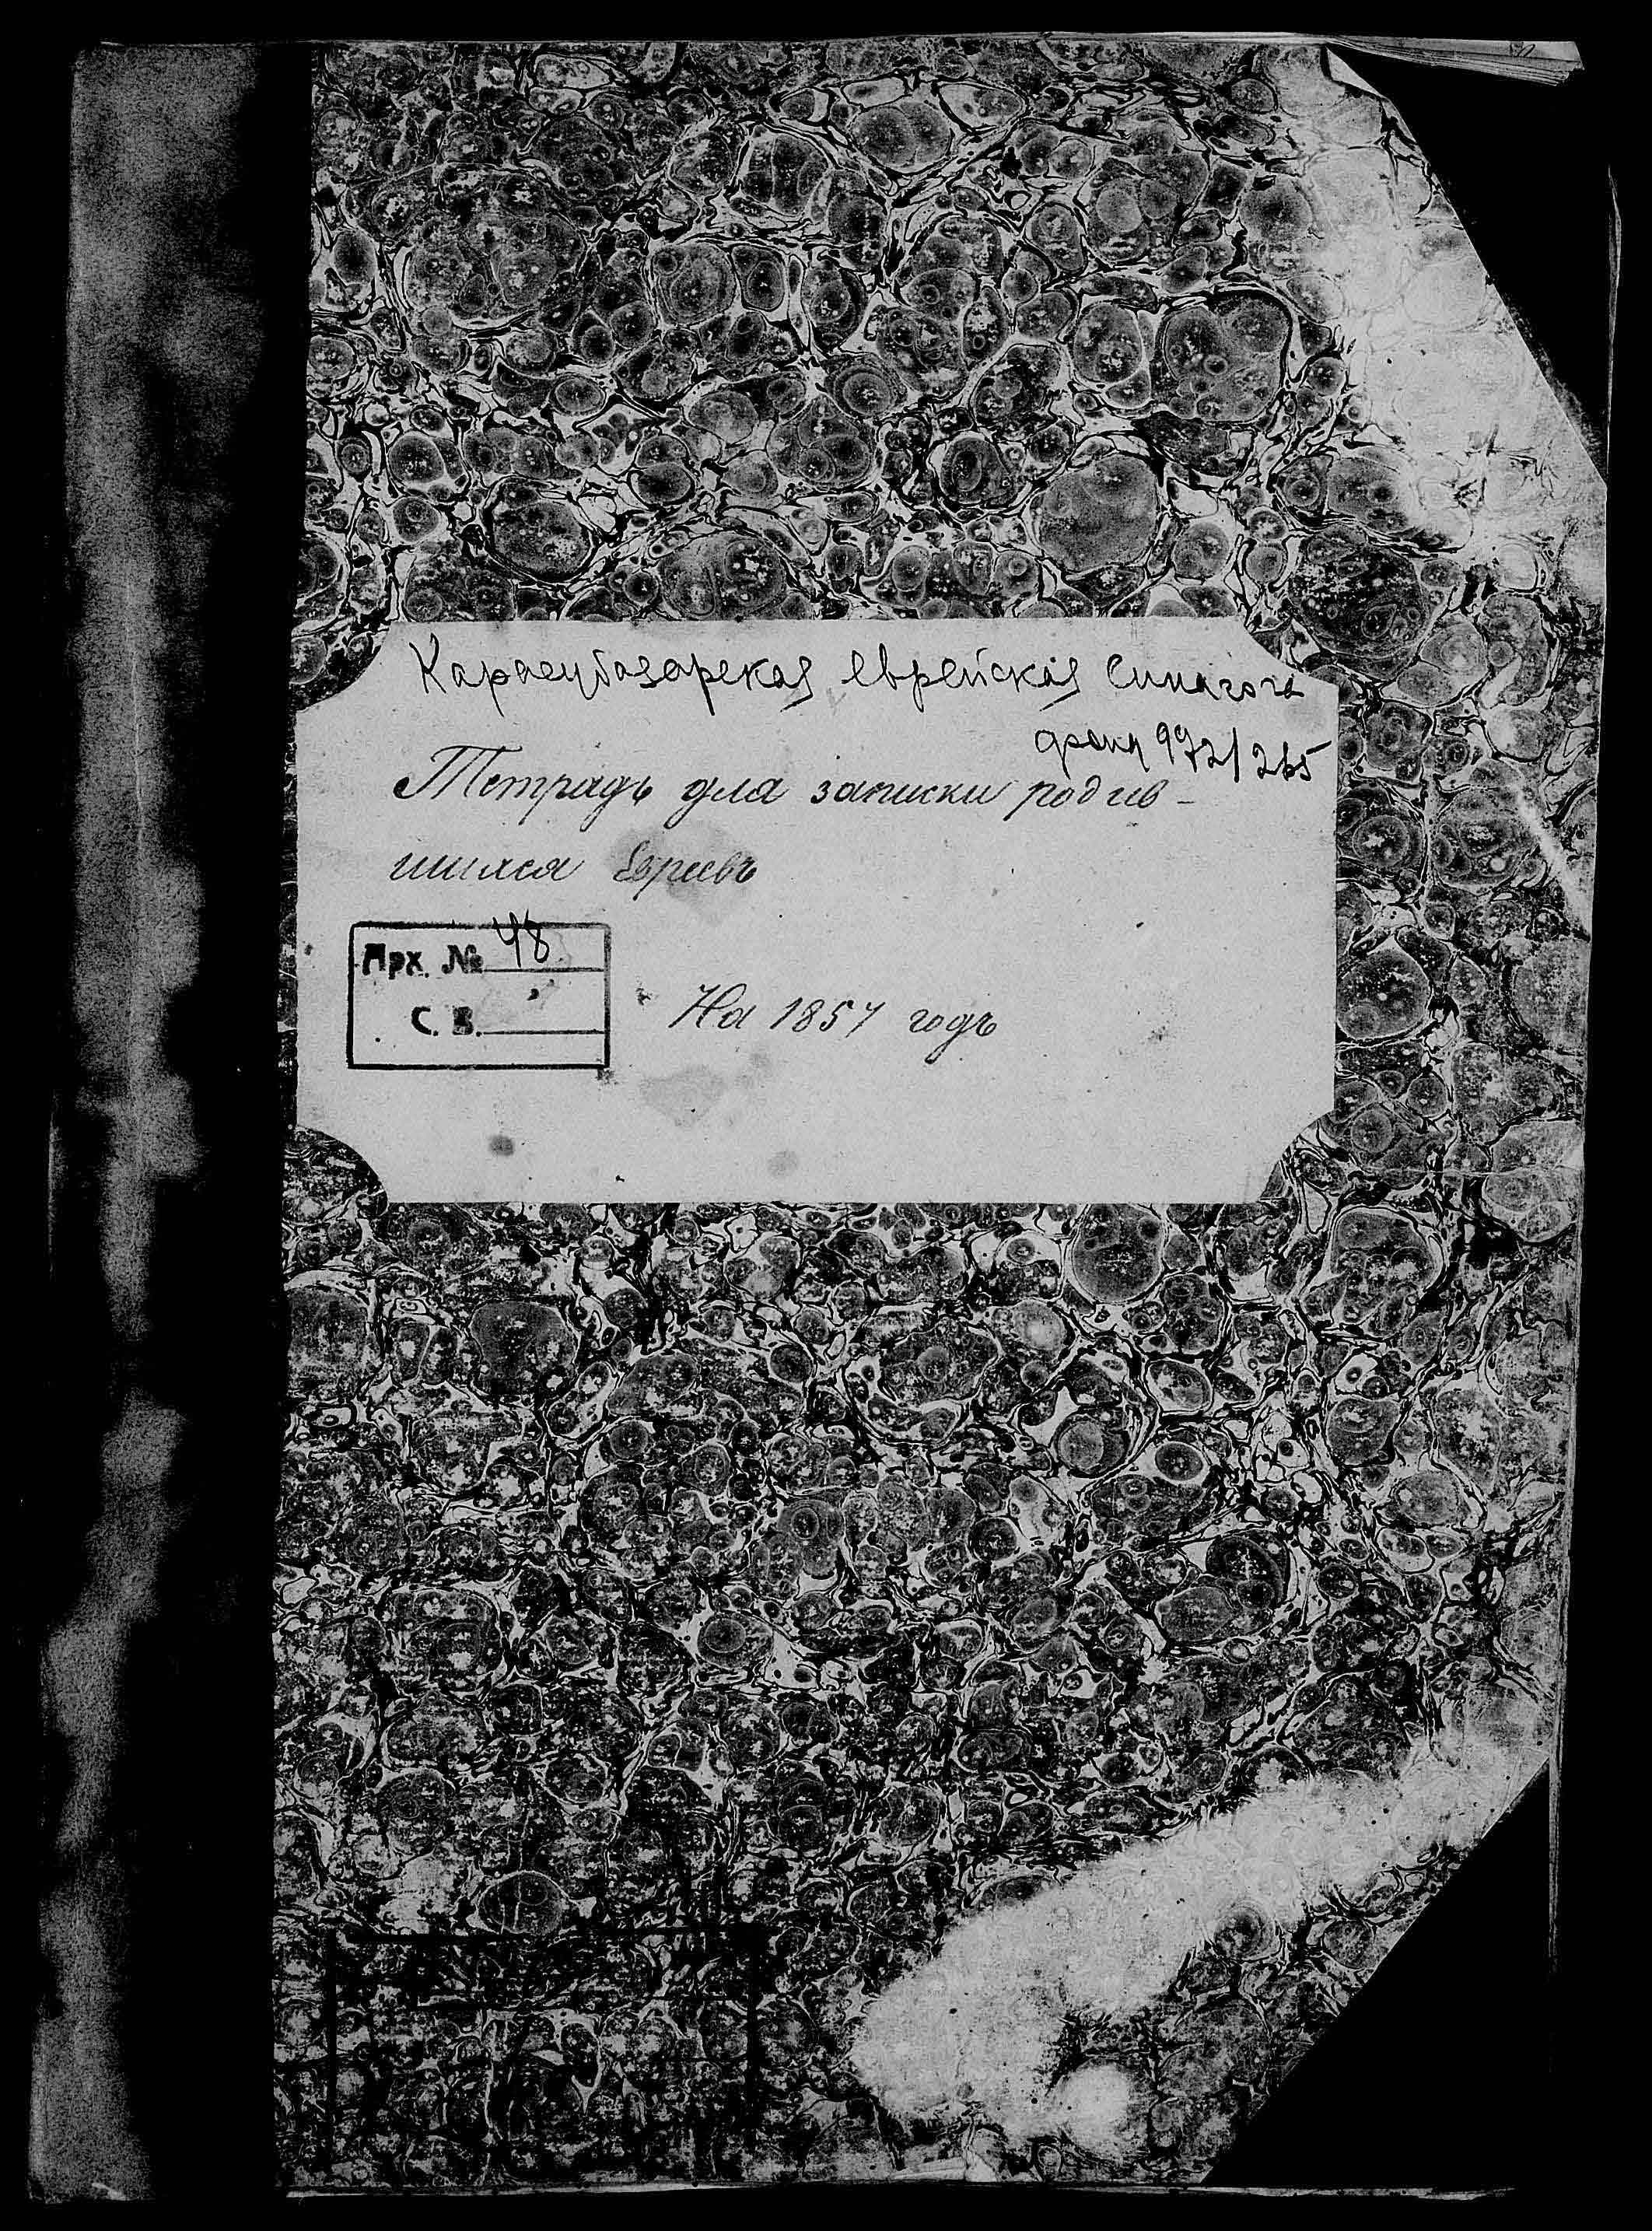 Карасубазарская еврейская Синагога
фонд 992/265
Тетрадь для записки родив-
шихся Евреевъ
Арх. № 48
С. В.
На 1857 годъ